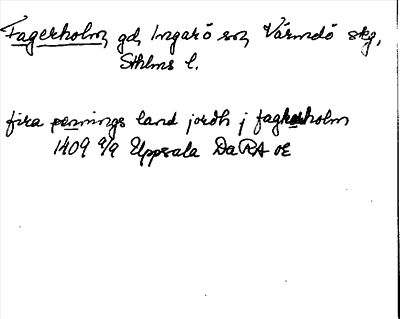 Fagerholm, gd, Ingarö sn, Värmdö skg,
Sthlms l.
fira pennings land jordh j fagherholm
1409 9/9 Uppsala Da RA oE